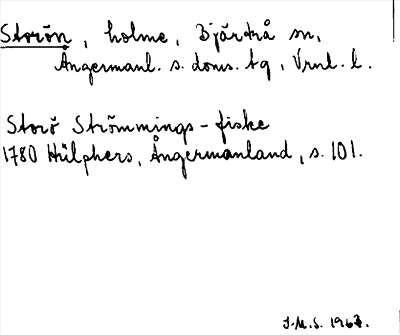 Storön, holme, Bjärtrå sn,
Ångermanl. s. doms. tg, Vrnl. l.
Storö Strömmings-fiske
1780 Hülphers, Ångermanland, s. 101.
J.M.S. 1963.